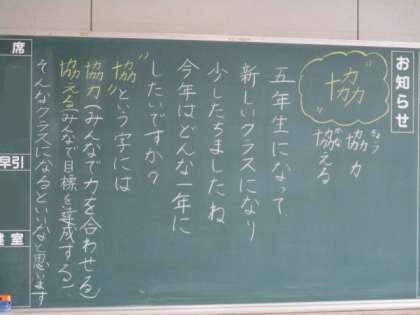 お知らせ
“協”
きょう
協力
かな
協える
五年生になって
新しいクラスになり
少したちましたね
今年はどんな一年に
したいですか?
“協”という字には
協力(みんなで力を合わせる)
協える(みんなで目標を達成する)、
そんなクラスになるといいなと思います
席
早引
室